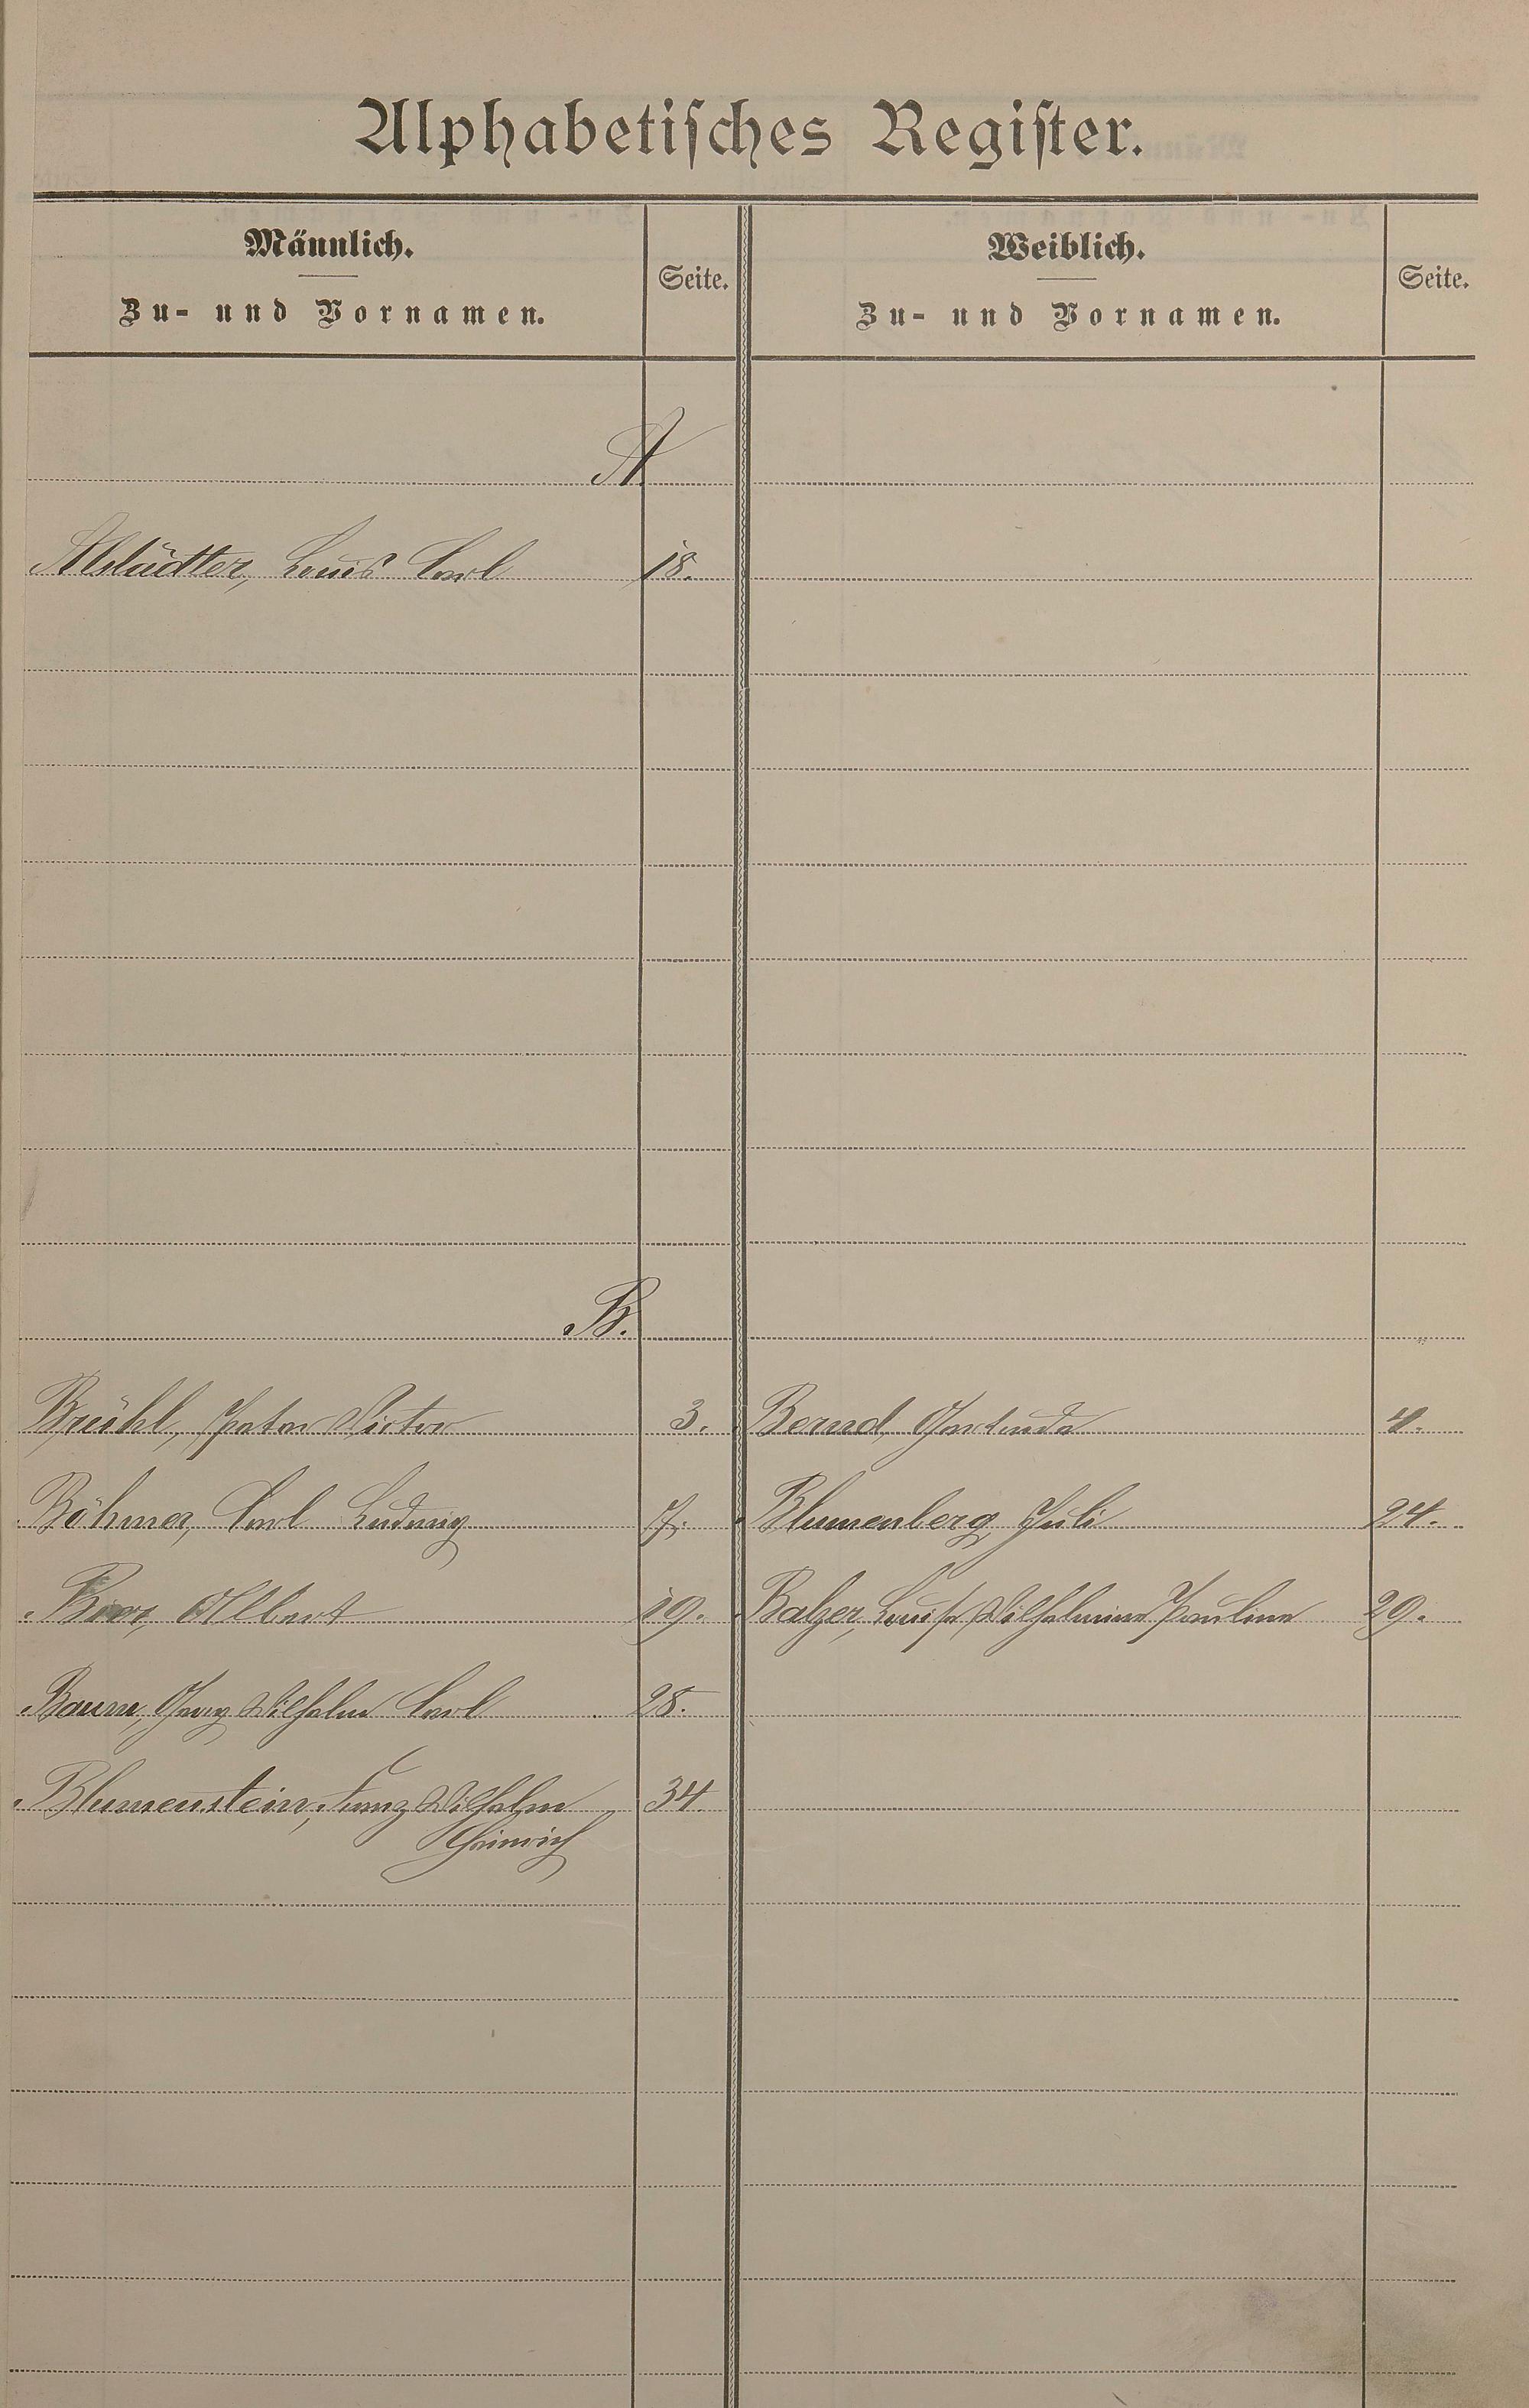 Alphabetisches Register.
Männlich.
Zu- und Vornamen.
Seite.
Weiblich.
Zu- und Vornamen.
Seite.
A.
Alstädter, Louis Carl 18.
B.
Brühl, Peter Victor 3. Bernd, Gertruda 4.
Böhmer, Carl Ludwig 17. Blumenberg, Juli 24.
Boos, Albert 19. Balzer, Louise Wilhelmine Pauline 29.
Baum, Georg Wilhelm Carl 28.
Blumenstein, Franz Wilhelm 34.
Heinrich